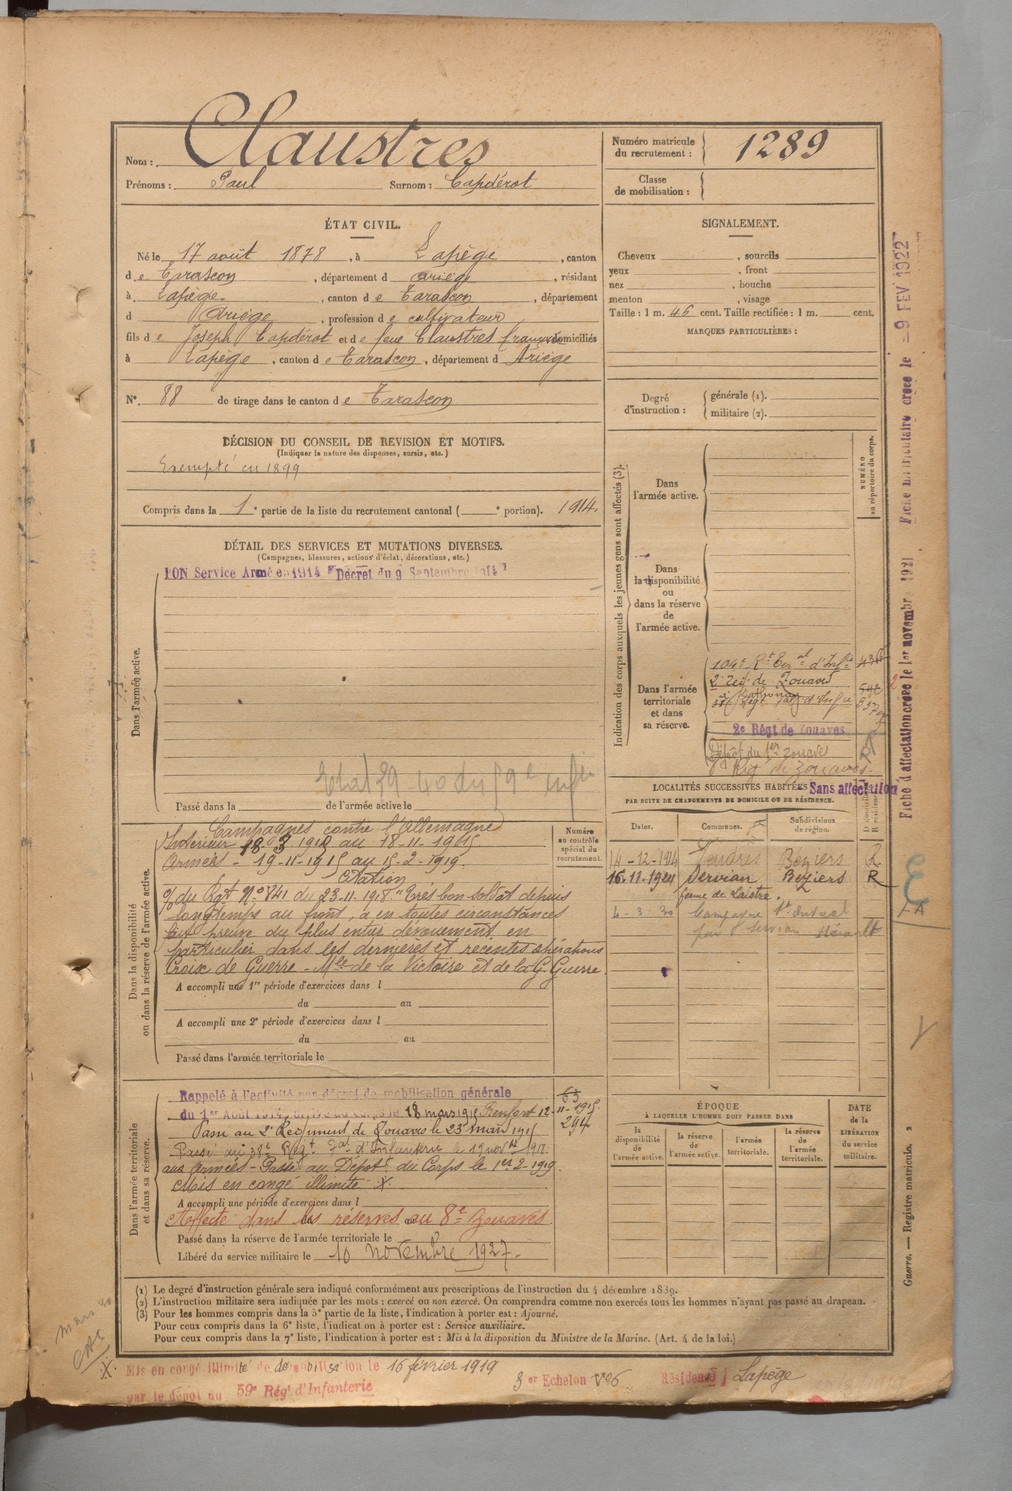 Nom : Claustres
Prénoms : Paul Surnom : Capdérot
Numéro matricule du recrutement : 1289
Classe de mobilisation :
ÉTAT CIVIL.
Né le 17 août 1878, à Lapège, canton
de Tarascon, département d Ariège, résidant
à Lapège, canton de Tarascon, département
d Ariège, profession de cultivateur
fils de Joseph Capdérot et de feue Claustres domiciliés
à Lapège, canton de Tarascon, département d Ariège
N° 88 de tirage dans le canton de Tarascon
DÉCISION DU CONSEIL DE REVISION ET MOTIFS.
(Indiquer la nature des dispenses, sursis, etc.)
Exempté en 1899
Compris dans la 1e partie de la liste du recrutement cantonal ( e portion). 1914.
SIGNALEMENT.
Cheveux , sourcils
yeux , front
nez , bouche
menton , visage
Taille : 1 m. 46 cent. Taille rectifiée : 1 m. cent.
MARQUES PARTICULIÈRES :
Degré d'instruction : générale (1).
militaire (2).
DÉTAIL DES SERVICES ET MUTATIONS DIVERSES.
(Campagnes, blessures, actions d'éclat, décorations, etc.)
Dans l'armée active.
BON Service Armé en 1914 Décret du 9 Septembre 1914
Passé dans la de l'armée active le
Indication des corps auxquels les jeunes gens sont affectés (3).
NUMÉRO au répertoire du corps.
Dans l'armée active.
Dans la disponibilité ou dans la réserve de l'armée active.
Dans l'armée territoriale et dans sa réserve.
2e Régt de Zouaves
Dépôt du Zouaves
Régt de Zouaves.
Sans affectation
LOCALITÉS SUCCESSIVES HABITÉES
PAR SUITE DE CHANGEMENTS DE DOMICILE OU DE RÉSIDENCE.
Dates. Communes. Subdivisions de région.
14-12-1914 Béziers R
16-11-1924 Servian Béziers R
Dans la disponibilité ou dans la réserve de l'armée active.
Numéro au contrôle spécial du recrutement.
Campagnes contre l'Allemagne
Intérieur 18 3 1915 au 18-11-1915
Armées - 19-11-1915 au 15-2-1919.
Citation
du Rgt N° 841 du 23-11-1918 "Très bon soldat depuis
longtemps au front, a en toutes circonstances
fait preuve du plus entier dévouement en
particulier dans les dernières et récentes opérations
Croix de Guerre - Mlle de la Victoire et de la G. Guerre
A accompli une 1re période d'exercices dans l
du au
A accompli une 2e période d'exercices dans l
du au
Passé dans l'armée territoriale le
Dans l'armée territoriale et dans sa réserve.
Rappelé à l'activité par décret de mobilisation générale
du 1er Août 1914, arrivé au corps le 18 mars 1915
Passé au 2e Régiment de Zouaves le 23 mars 1915
aux armées - Passé au Dépôt du Corps le 1er 2-1919.
Mis en congé illimité X
A accompli une période d'exercices dans l
Affecté dans les réserves au 8e Zouaves
Passé dans la réserve de l'armée territoriale le
Libéré du service militaire le 10 novembre 1927.
ÉPOQUE
À LAQUELLE L'HOMME DOIT PASSER DANS
la disponibilité de l'armée active. la réserve de l'armée active. l'armée territoriale. la réserve de l'armée territoriale.
DATE de la LIBÉRATION du service militaire.
(1) Le degré d'instruction générale sera indiqué conformément aux prescriptions de l'instruction du 4 décembre 1889.
(2) L'instruction militaire sera indiquée par les mots : exercé ou non exercé. On comprendra comme non exercés tous les hommes n'ayant pas passé au drapeau.
(3) Pour les hommes compris dans la 5e partie de la liste, l'indication à porter est : Ajourné.
Pour ceux compris dans la 6e liste, l'indication à porter est : Service auxiliaire.
Pour ceux compris dans la 7e liste, l'indication à porter est : Mis à la disposition du Ministre de la Marine. (Art. 4 de la loi.)
X. Mis en congé illimité de démobilisation le 16 février 1919
par le dépôt du 59e Régt d'Infanterie
Echelon Résidence Lapège
Fiche d'affectation créée le 1er novembre 1921
9 FEV 1922
Guerre. — Registre matricule. 2